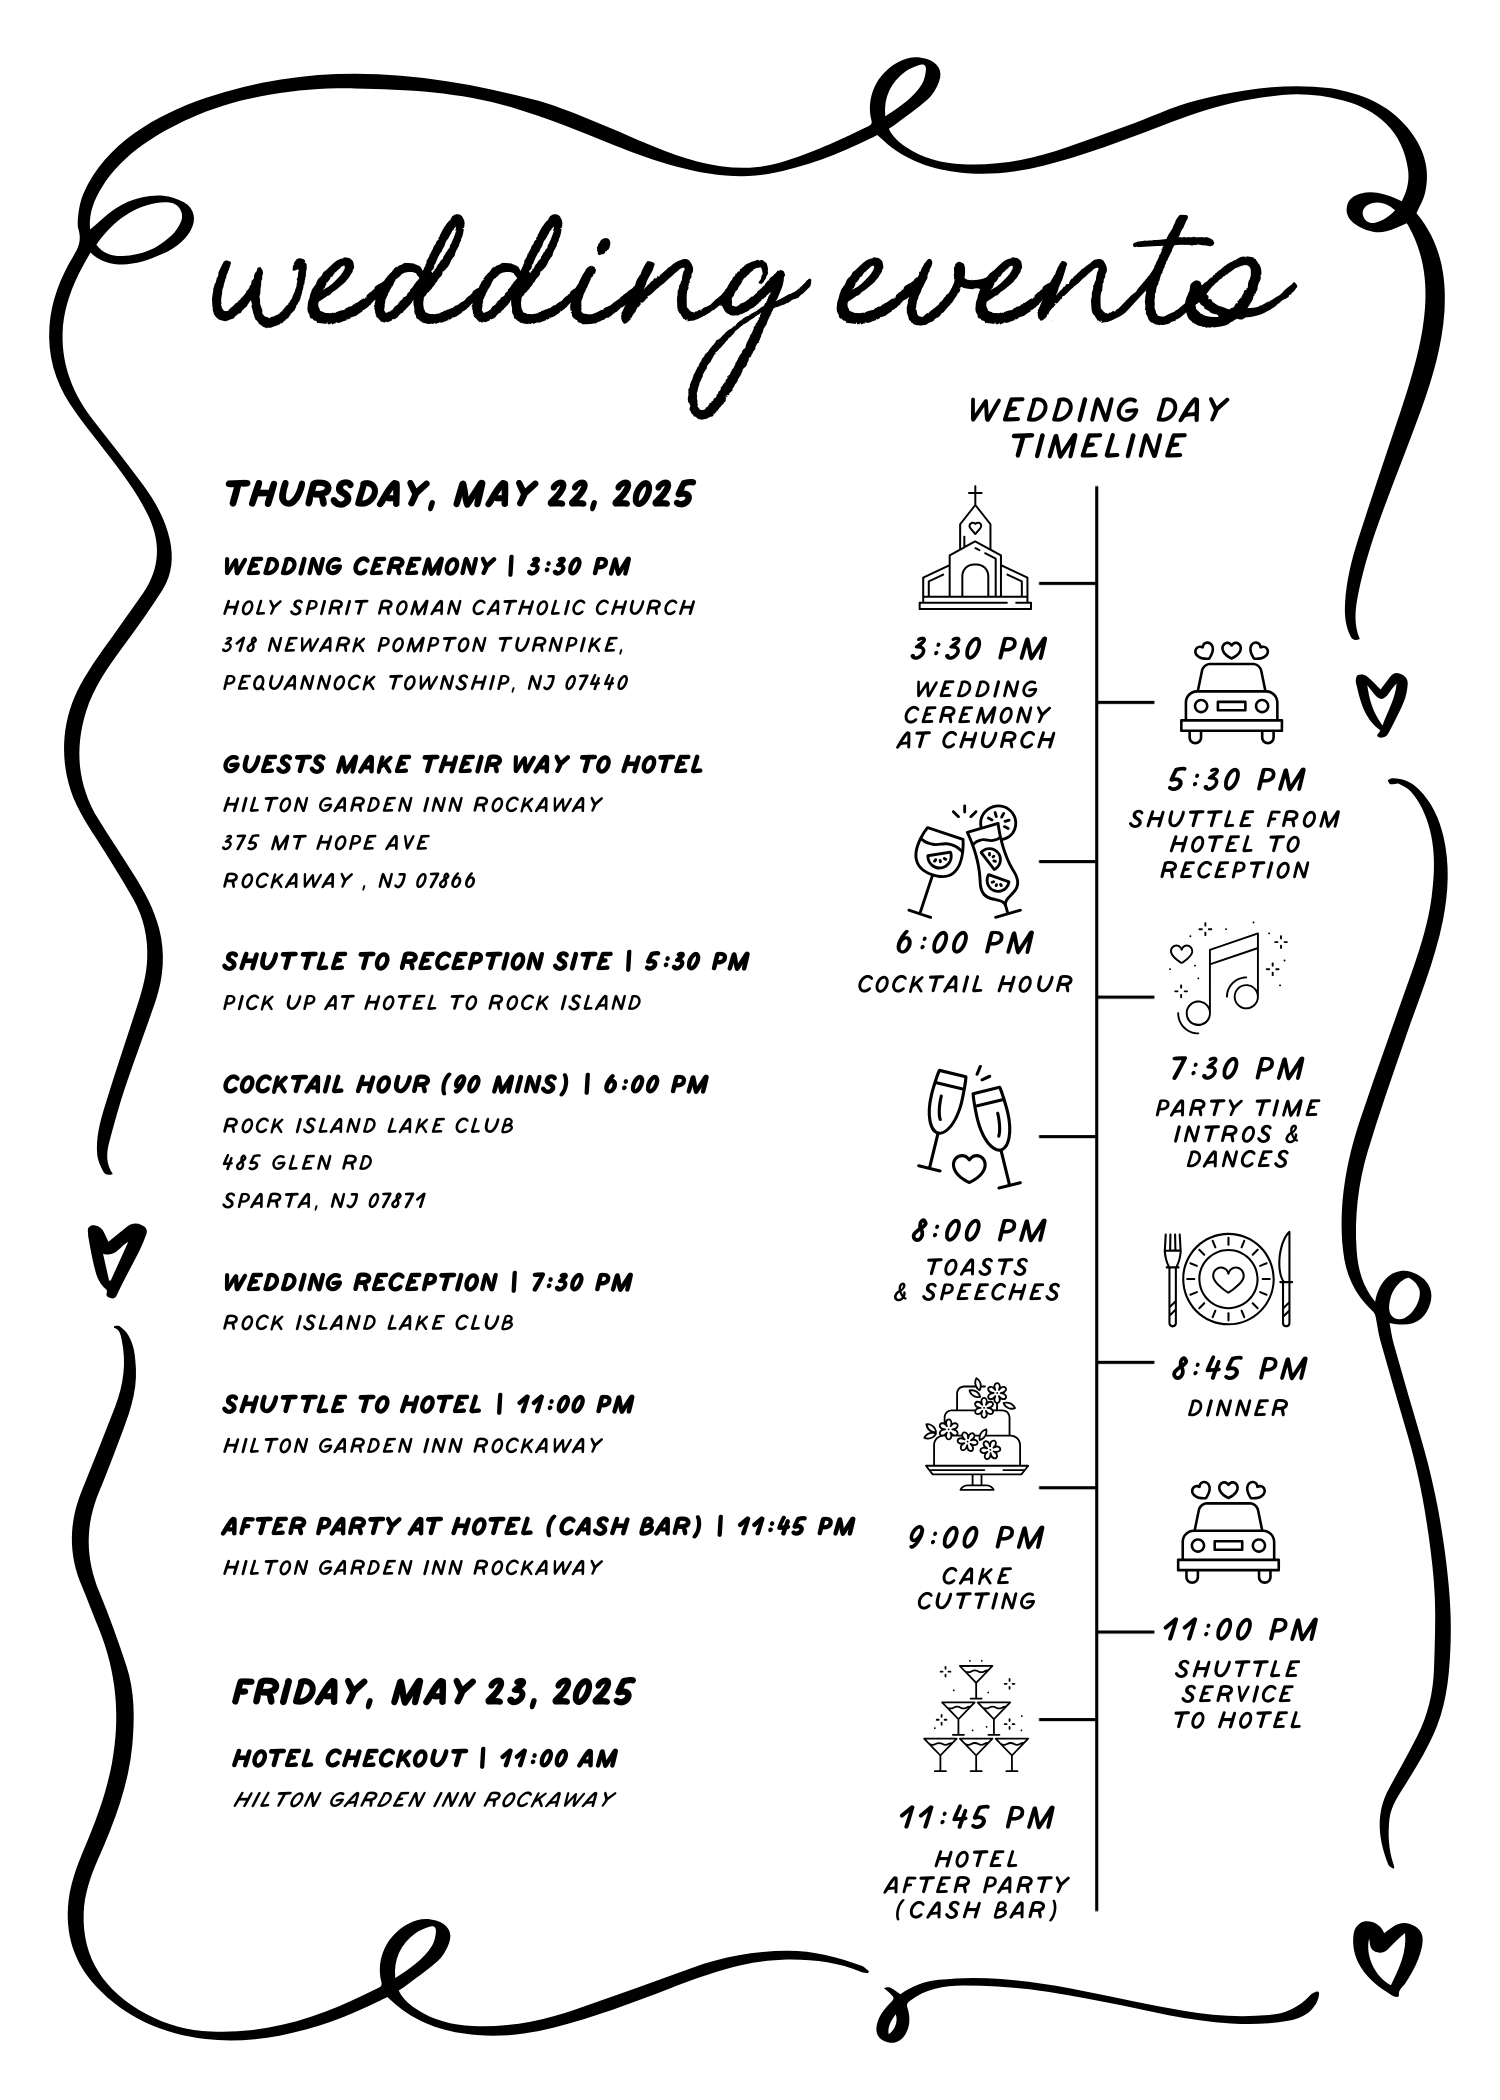 wedding events
THURSDAY, MAY 22, 2025
WEDDING CEREMONY | 3:30 PM
HOLY SPIRIT ROMAN CATHOLIC CHURCH
318 NEWARK POMPTON TURNPIKE,
PEQUANNOCK TOWNSHIP, NJ 07440
GUESTS MAKE THEIR WAY TO HOTEL
HILTON GARDEN INN ROCKAWAY
375 MT HOPE AVE
ROCKAWAY , NJ 07866
SHUTTLE TO RECEPTION SITE | 5:30 PM
PICK UP AT HOTEL TO ROCK ISLAND
COCKTAIL HOUR (90 MINS) | 6:00 PM
ROCK ISLAND LAKE CLUB
485 GLEN RD
SPARTA, NJ 07871
WEDDING RECEPTION | 7:30 PM
ROCK ISLAND LAKE CLUB
SHUTTLE TO HOTEL | 11:00 PM
HILTON GARDEN INN ROCKAWAY
AFTER PARTY AT HOTEL (CASH BAR) | 11:45 PM
HILTON GARDEN INN ROCKAWAY
FRIDAY, MAY 23, 2025
HOTEL CHECKOUT | 11:00 AM
HILTON GARDEN INN ROCKAWAY
WEDDING DAY
TIMELINE
3:30 PM
WEDDING
CEREMONY
AT CHURCH
5:30 PM
SHUTTLE FROM
HOTEL TO
RECEPTION
6:00 PM
COCKTAIL HOUR
7:30 PM
PARTY TIME
INTROS &
DANCES
8:00 PM
TOASTS
& SPEECHES
8:45 PM
DINNER
9:00 PM
CAKE
CUTTING
11:00 PM
SHUTTLE
SERVICE
TO HOTEL
11:45 PM
HOTEL
AFTER PARTY
(CASH BAR)